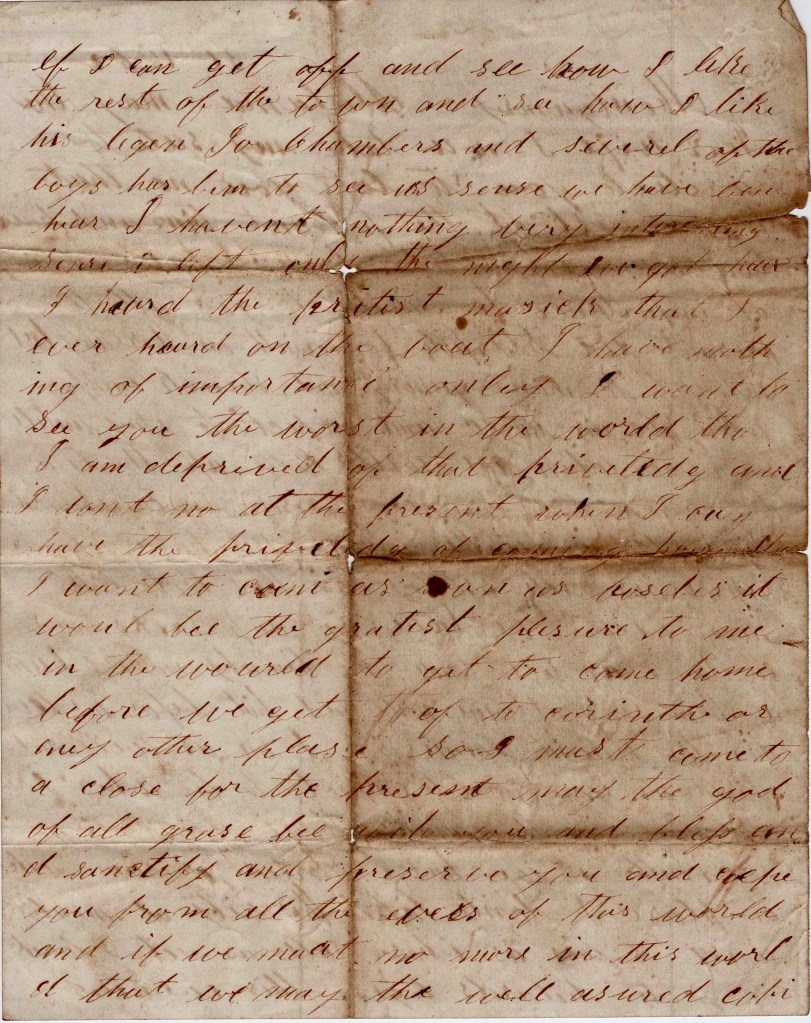 if I can get opp and see how I like
the rest of the town and see how I like
his legen Jo Chambers and severel of the
boys has bem to see us sense we have ben
hear I havent nothing very interesting
sense i left only the night we got hear
I heard the pritist musick that I
ever heard on the boat I have noth
ing of importance onley I want to
see you the worst in the world tho
I am deprived of that priviledg and
I dont no at the present when I can
have the priveledg of coming home tho
I want to come as soon as posebs it
woul bee the gratist plesure to me
in the wourld to get to come home
before we get of to corinth or
eney other plase so I must come to
a close for the present may the god
of all grase bee with you and bless an
d sanctify and preserve you and ceepe
you from all the evels of this world
and if we meat no more in this worl
d that we may the well asured